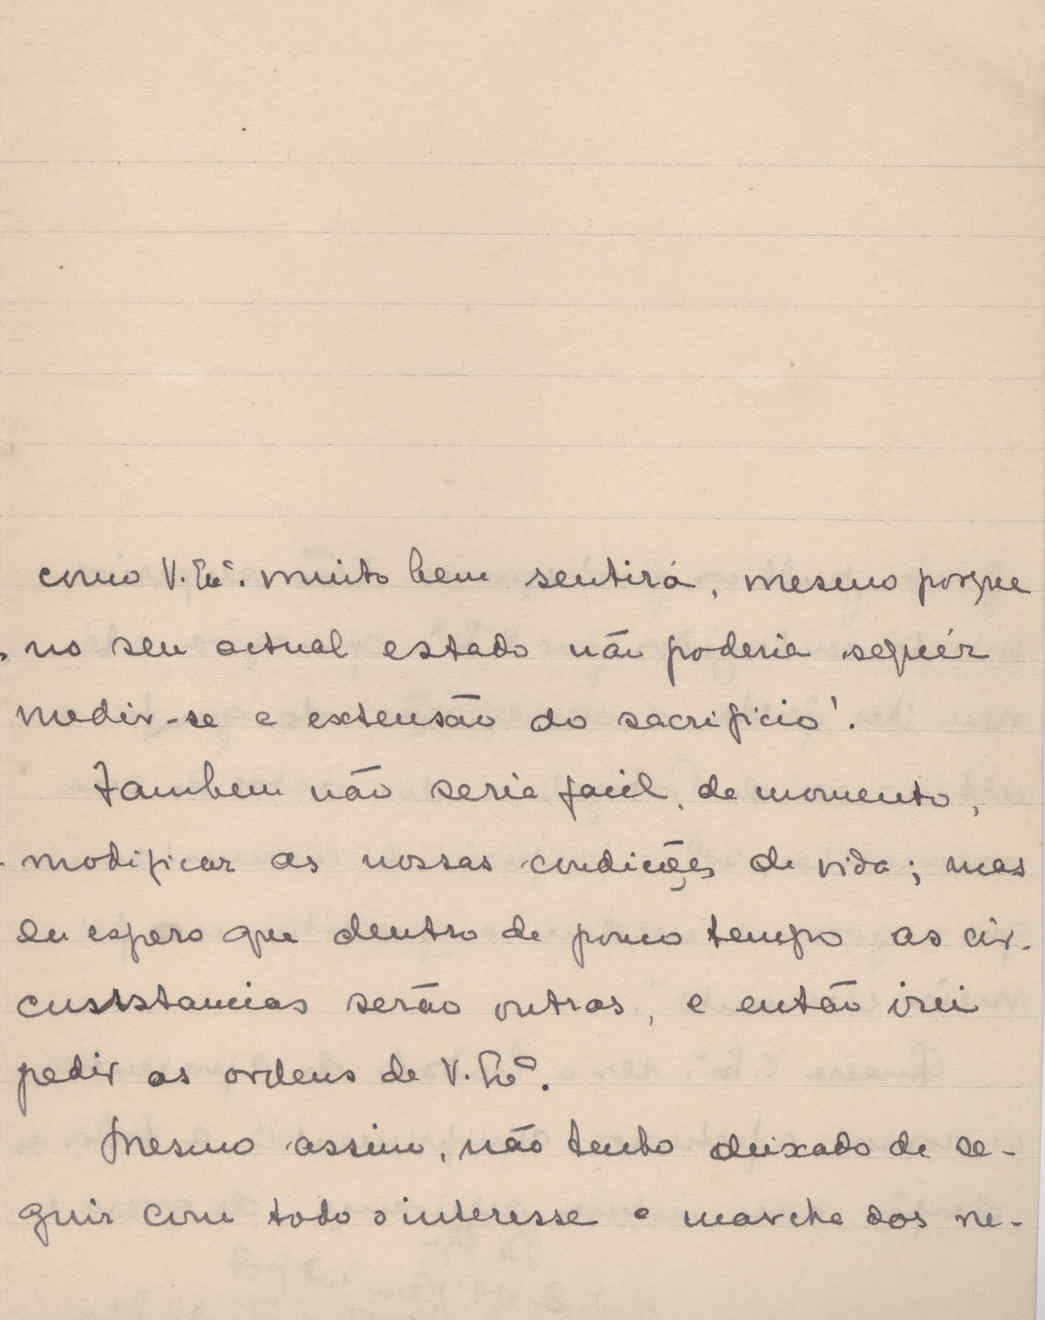 como V. Exª. muito bem sentirá, mesmo porque
no seu actual estado não poderia sequér
medir-se a extensão do sacrificio'.
Tambem não seria facil, de momento,
modificar as nossas condições de vida; mas
eu espero que dentro de pouco tempo as cir-
cusstancias serão outras, e então irei
pedir as ordens de V. Exª.
Mesmo assim, não tenho deixado de se-
guir com todo o interesse a marcha dos ne-